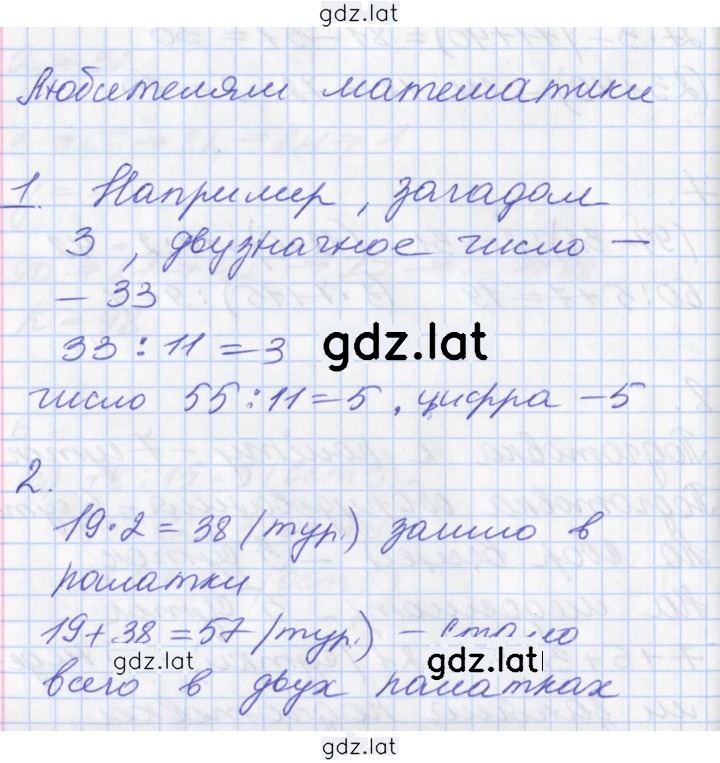 gdz.lat
Любителям математики
1. Например, загадал
3, двузначное число –
– 33
33 : 11 = 3
gdz.lat
число 55 : 11 = 5, цифра – 5
2.
19 · 2 = 38 (тур.) зашло в
палатки
19 + 38 = 57 (тур.) – стало
gdz.lat gdz.lat
всего в двух палатках
gdz.lat